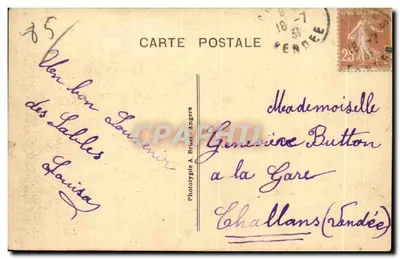 85
CARTE POSTALE
18 -7
31
VENDÉE
25c
Un bon Souvenir
des Sables
Louisa
Phototypie A. Bruel, Angers
Mademoiselle
Geneviève Button
a la Gare
Challans (Vendée)